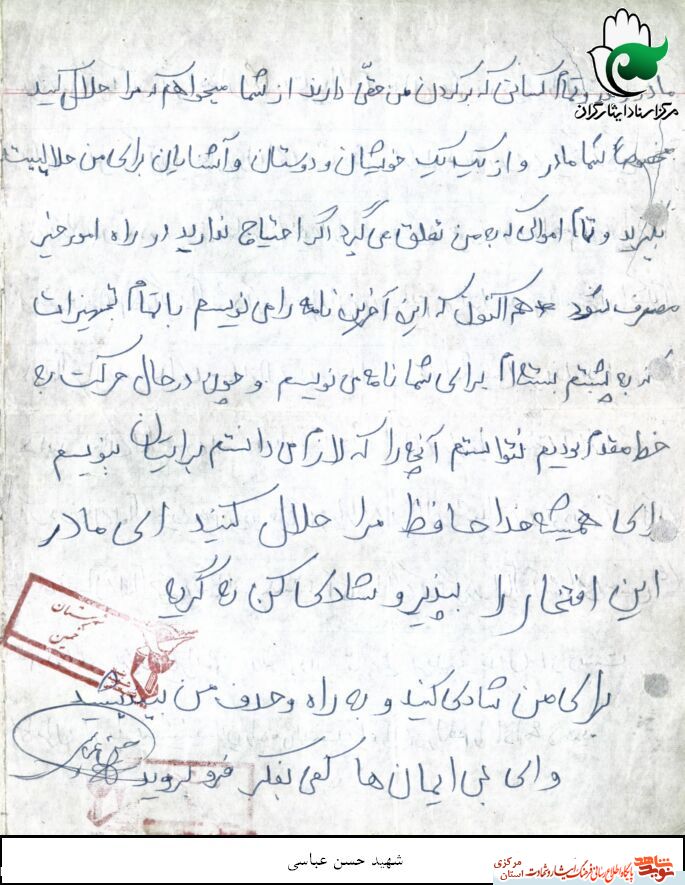 مرکز اسناد ایثارگران
مادر و پدر و تمام کسانی که بر گردن من حقی دارند از شما میخواهم که مرا حلال کنید
مخصوصاً شما مادر و از یک یک خویشان و دوستان و آشنایان برای من حلالیت
بگیرید و تمام اموالی که به من تعلق می گیرد اگر احتیاج ندارید در راه امور خیر
مصرف شود هم اکنون که این آخرین نامه را می نویسم با تمام تجهیزات
که به پشتم بسته ام برای شما نامه می نویسم و چون در حال حرکت به
خط مقدم بودیم نتوانستم آنچه را که لازم می دانستم برایتان بنویسم
برای همیشه خداحافظ مرا حلال کنید ای مادر
این افتخار را بپذیر و شادی کن نه گریه
برای من شادی کنید و به راه و هدف من بیندیشید
وای بی ایمان ها کمی بفکر فرو بروید
حسن عباسی
استان
خمین
شهید حسن عباسی
نوید شاهد
پایگاه اطلاع رسانی فرهنگ ایثار و شهادت استان مرکزی